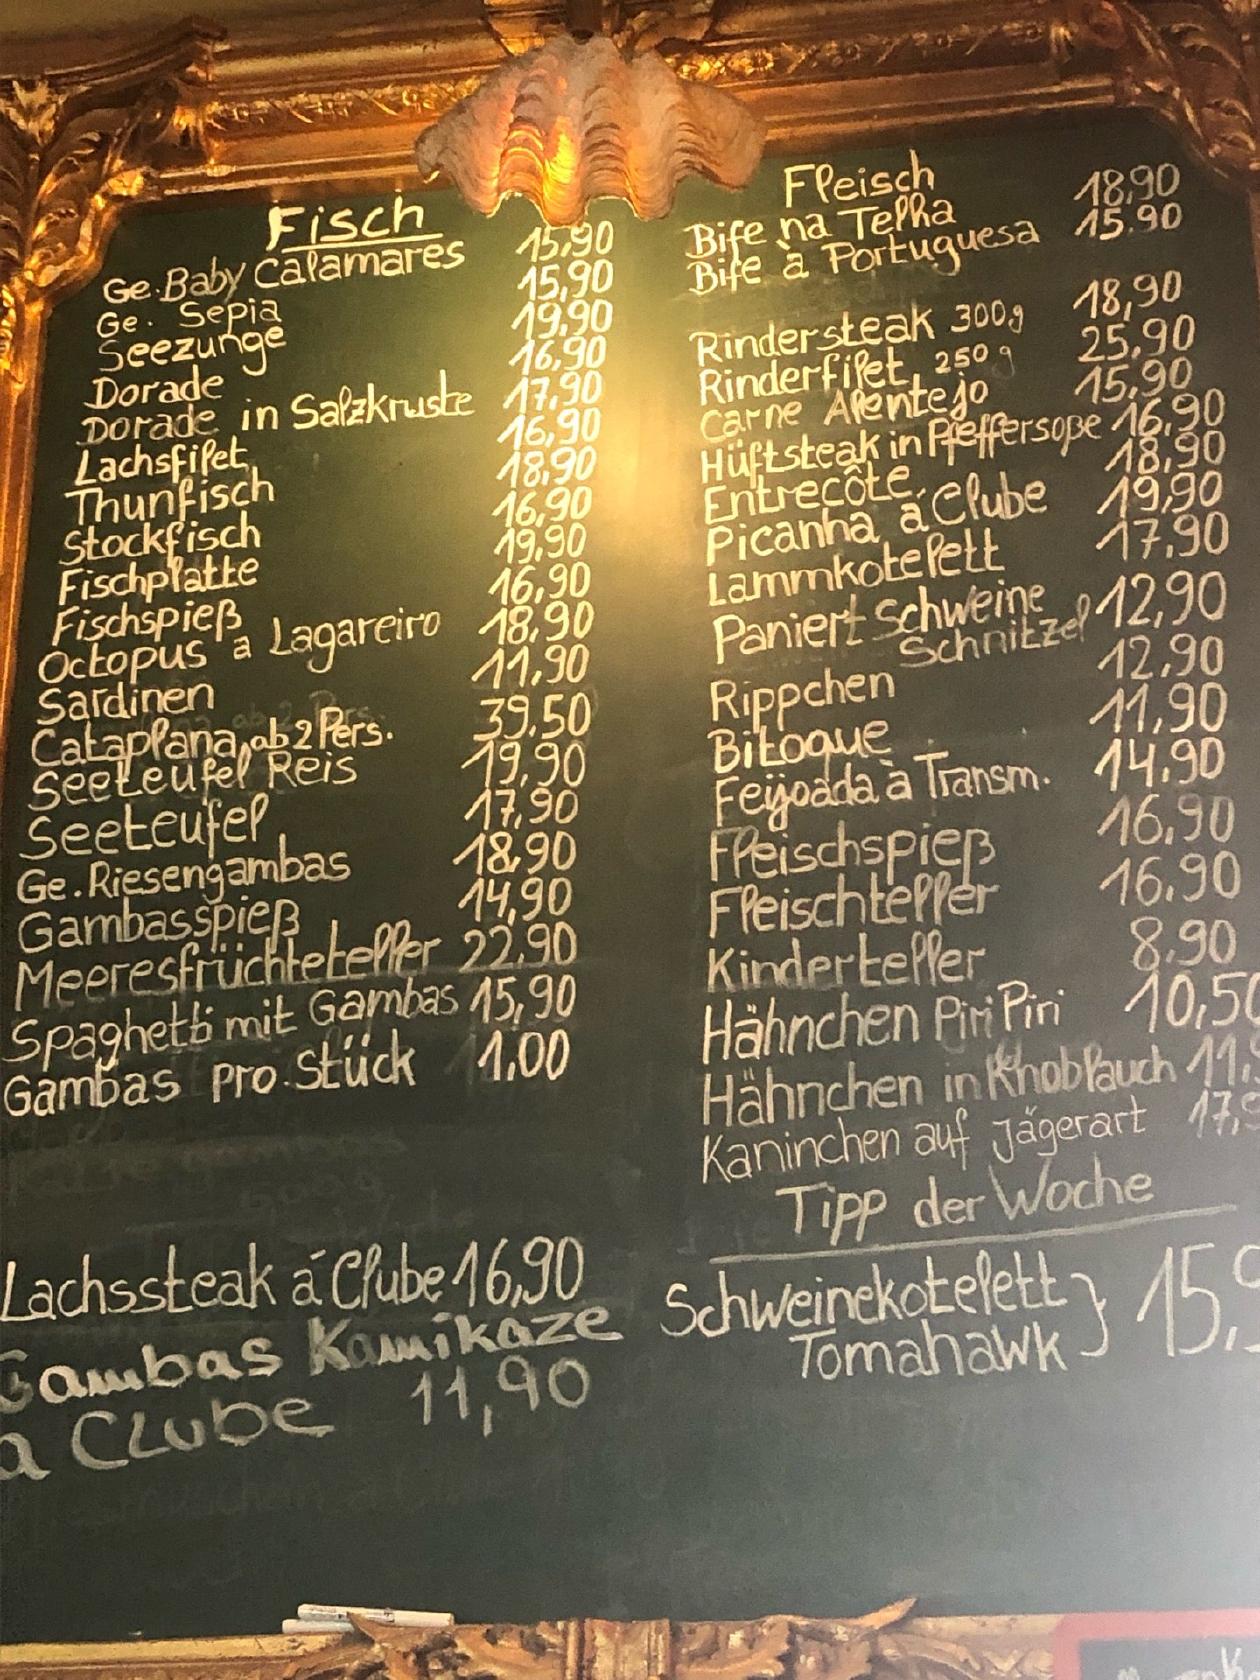 Fisch
Ge. Baby Calamares 15,90
Ge. Sepia 15,90
Seezunge 19,90
Dorade 16,90
Dorade in Salzkruste 17,90
Lachsfilet 16,90
Thunfisch 18,90
Stockfisch 16,90
Fischplatte 19,90
Fischspieß 16,90
Octopus a Lagareiro 18,90
Sardinen 11,90
Cataplana, ab 2 Pers. 39,50
Seeteufel Reis 19,90
Seeteufel 17,90
Ge. Riesengambas 18,90
Gambasspieß 14,90
Meeresfrüchteteller 22,90
Spaghetti mit Gambas 15,90
Gambas pro Stück 1,00
Lachssteak á Clube 16,90
Gambas Kamikaze
a Clube 11,90
Fleisch
Bife na Telha 18,90
Bife à Portuguesa 15.90
Rindersteak 300g 18,90
Rinderfilet 250g 25,90
Carne Alentejo 15,90
Hüftsteak in Pfeffersoße 16,90
Entrecôte 18,90
Picanha á Clube 19,90
Lammkotelett 17,90
Paniert Schweine
Schnitzel 12,90
Rippchen 12,90
Bitoque 11,90
Feijoada à Transm. 14,90
Fleischspieß 16,90
Fleischteller 16,90
Kinderteller 8,90
Hähnchen Piri Piri 10,50
Hähnchen in Knoblauch 11,9
Kaninchen auf Jägerart 17,9
Tipp der Woche
Schweinekotelett
Tomahawk } 15,9